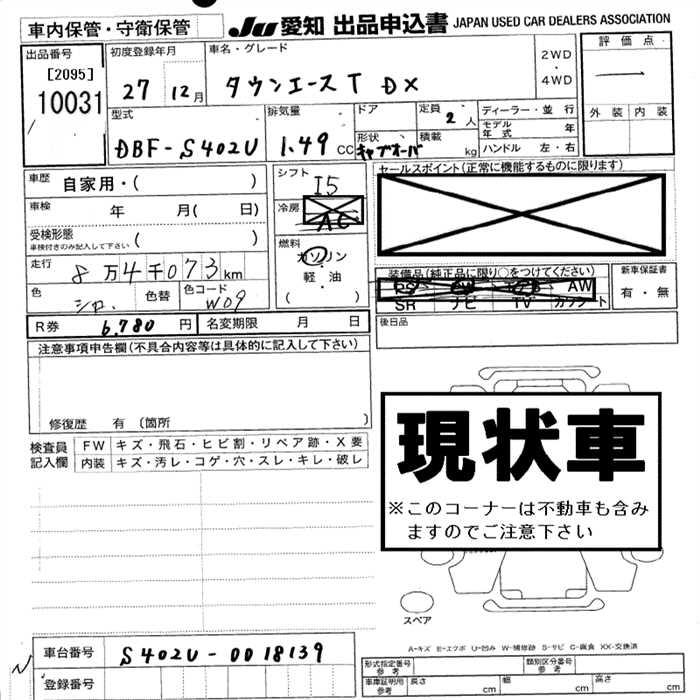 車内保管・守衛保管
JU 愛知 出品申込書 JAPAN USED CAR DEALERS ASSOCIATION
出品番号
[2095]
10031
初度登録年月
27 12月
車名・グレード
タウンエースT DX
2WD
・
4WD
評価点
外装 内装
型式
DBF-S402U
排気量
1.49 CC
ドア
形状
キャブオーバ
定員 2 人
積載 kg
ディーラー・並行
モデル年式 年
ハンドル 左・右
車歴 自家用・( )
車検 年 月( 日)
受検形態
車検付きのみ記入して下さい ( )
走行 8万4千073km
色 シロ. 色替 色コード W09
シフト I5
冷房 AC
燃料
ガソリン
軽・油
( )
セールスポイント(正常に機能するものに限ります)
装備品(純正品に限り○をつけてください)
PS AW
SR ナビ TV カワシート
新車保証書
有・無
R券 6,780 円 名変期限 月 日
後日品
注意事項申告欄(不具合内容等は具体的に記入して下さい)
修復歴 有 (箇所 )
検査員記入欄
FW キズ・飛石・ヒビ割・リペア跡・X要
内装 キズ・汚レ・コゲ・穴・スレ・キレ・破レ
現状車
※このコーナーは不動車も含み
ますのでご注意下さい
スペア
A-キズ E-エクボ U-凹み W-補修跡 S-サビ C-腐食 XX-交換済
N
車台番号 S402U-0018139
登録番号
形式指定番号 参考
類別区分番号 参考
車庫証明用 参考 長さ cm 幅 cm 高さ cm